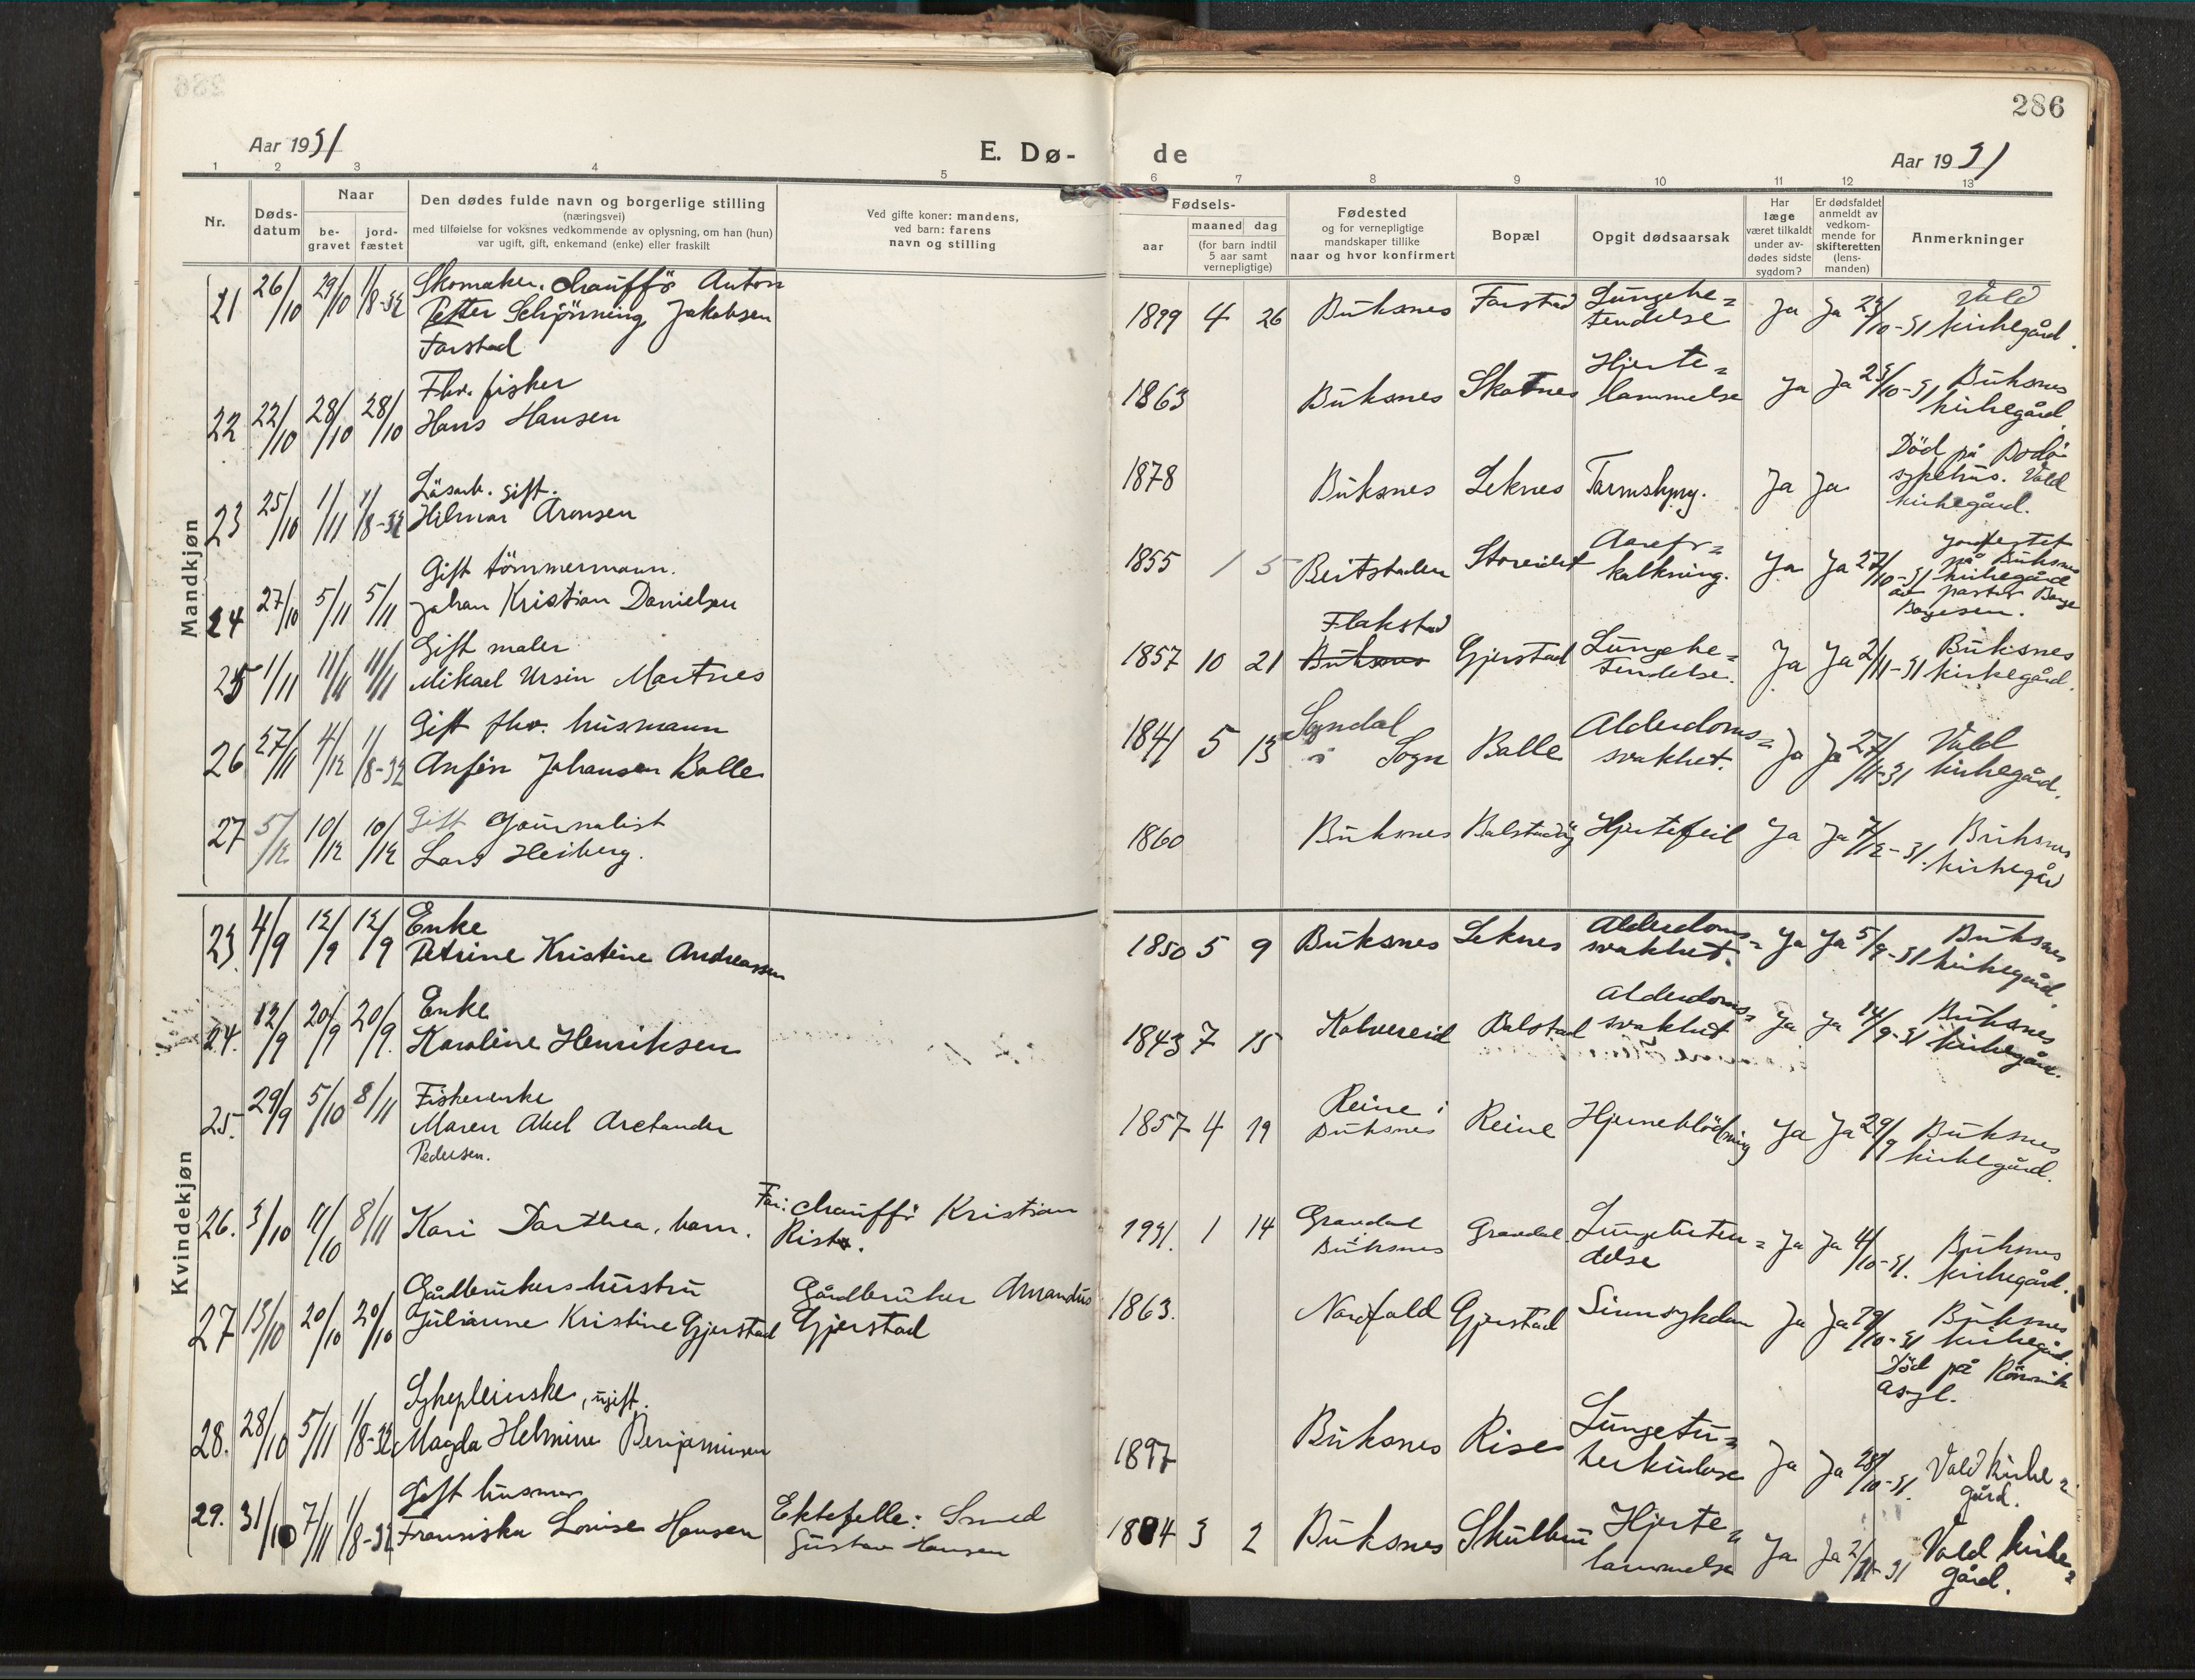 286
Aar 1931
E. Dø-
de
Aar 1931
1 2 3 4 5 6 7 8 9 10 11 12 13
Nr.
Døds-
datum
Naar
be-
gravet
jord-
fæstet
Den dødes fulde navn og borgerlige stilling
(næringsvei)
med tilføielse for voksnes vedkommende av oplysning, om han (hun)
var ugift, gift, enkemand (enke) eller fraskilt
Ved gifte koner: mandens,
ved barn: farens
navn og stilling
Fødsels-
aar
maaned dag
(for barn indtil
5 aar samt
vernepligtige)
Fødested
og for vernepligtige
mandskaper tillike
naar og hvor konfirmert
Bopæl
Opgit dødsaarsak
Har
læge
været tilkaldt
under av-
dødes sidste
sygdom?
Er dødsfaldet
anmeldt av
vedkom-
mende for
skifteretten
(lens-
manden)
Anmerkninger
Mandkjøn
21 26/10 29/10 1/8-32 Skomaker, chauffør Anton
Petter Schjönning Jakobsen
Farstad
1899 4 26 Buksnes Farstad Lungebe=
tendelse Ja Ja 29/10-31 Vald
kirkegård.
22 22/10 28/10 28/10 Fhv. fisker
Hans Hansen
1863 Buksnes Skotnes Hjerte=
lammelse Ja Ja 23/10-31 Buksnes
kirkegård.
23 25/10 1/11 1/8-32 Lösarb. gift.
Hilmar Aronsen
1878 Buksnes Leknes Tarmslyng. Ja Ja Död på Bodö
sykehus. Vald
kirkegård.
24 27/10 5/11 5/11 Gift tömmermann.
Johan Kristian Danielsen
1855 1 5 Beitstaden Storeidet Aarefor=
kalkning. Ja Ja 27/10-31 Jordfestet
på Buksnes
kirkegård
av pastor Borge
Borgesen.
25 1/11 11/11 11/11 Gift maler
Mikael Ursin Mortnes
1857 10 21 Flakstad
Buksnes Gjerstad Lungebe=
tendelse. Ja Ja 2/11-31 Buksnes
kirkegård.
26 27/11 4/12 1/8-32 Gift fhv. husmann
Anfin Johansen Balle
1841 5 13 Sogndal
i Sogn Balle Alderdoms=
svakhet. Ja Ja 27/11-31 Vald
kirkegård.
27 5/12 10/12 10/12 Gift journalist
Lars Heiberg.
1860 Buksnes Balstad Hjertefeil Ja Ja 7/12-31. Buksnes
kirkegård
Kvindekjøn
23. 4/9 12/9 12/9 Enke
Petrine Kristine Andreassen
1850 5 9 Buksnes Leknes Alderdoms=
svakhet. Ja Ja 5/9-31 Buksnes
kirkegård.
24. 12/9 20/9 20/9. Enke
Karoline Henriksen
1843 7 15 Kolvereid Balstad Alderdoms=
svakhet Ja Ja 14/9-31 Buksnes
kirkegård.
25. 29/9 5/10 8/11 Fiskerenke
Maren Abel Arctander
Pedersen.
1857 4 19 Reine i
Buksnes Reine Hjerneblödning Ja Ja 29/9 Buksnes
kirkegård.
26. 3/10 11/10 8/11 Kari Dorthea, barn.
Far: chauffør Kristian
Rist.
1931. 1 14 Gravdal
Buksnes Gravdal Lungebeten=
delse Ja Ja 4/10-31. Buksnes
kirkegård.
27 13/10 20/10 20/10 Gårdbrukers hustru
Julianne Kristine Gjerstad
Gårdbruker Amandus
Gjerstad
1863. Nordfold Gjerstad Sinnsykdom Ja Ja 19/10-31 Buksnes
kirkegård.
Död på Rönvik
asyl.
28. 28/10 5/11 1/8-32 Sykepleierske, ugift.
Magda Helmine Benjaminsen
1897 Buksnes Rise Lungetu=
berkulose Ja Ja 28/10-31. Vald kirke=
gård.
29. 31/10 7/11 1/8-32 Gift husmor
Fransiska Lovise Hansen
Ektefelle: Smed
Gustav Hansen
1884 3 2 Buksnes Skulbru Hjerte=
lammelse Ja Ja 2/11-31 Vald kirke=
gård.